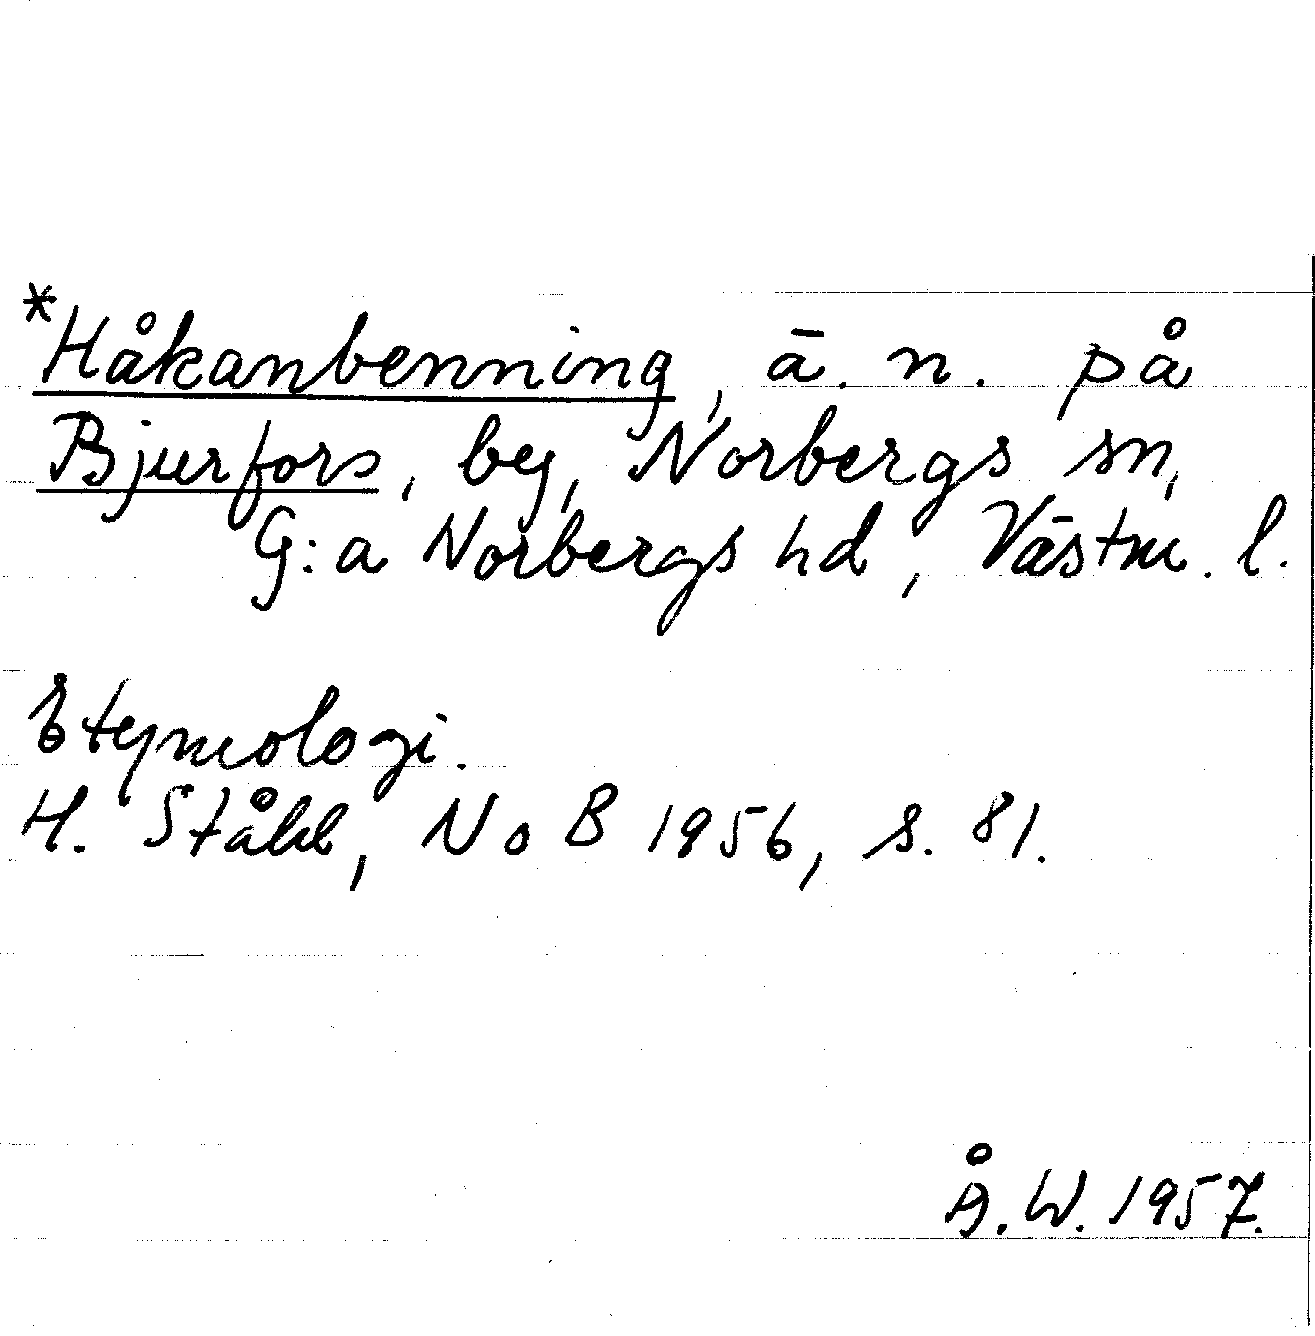 *Håkanbenning, ä. n. på
Bjurfors, by, Norbergs sn,
G:a Norbergs hd, Västm. l.
Etymologi.
H. Ståhl, NoB 1956, s. 81.
Å. W. 1957.